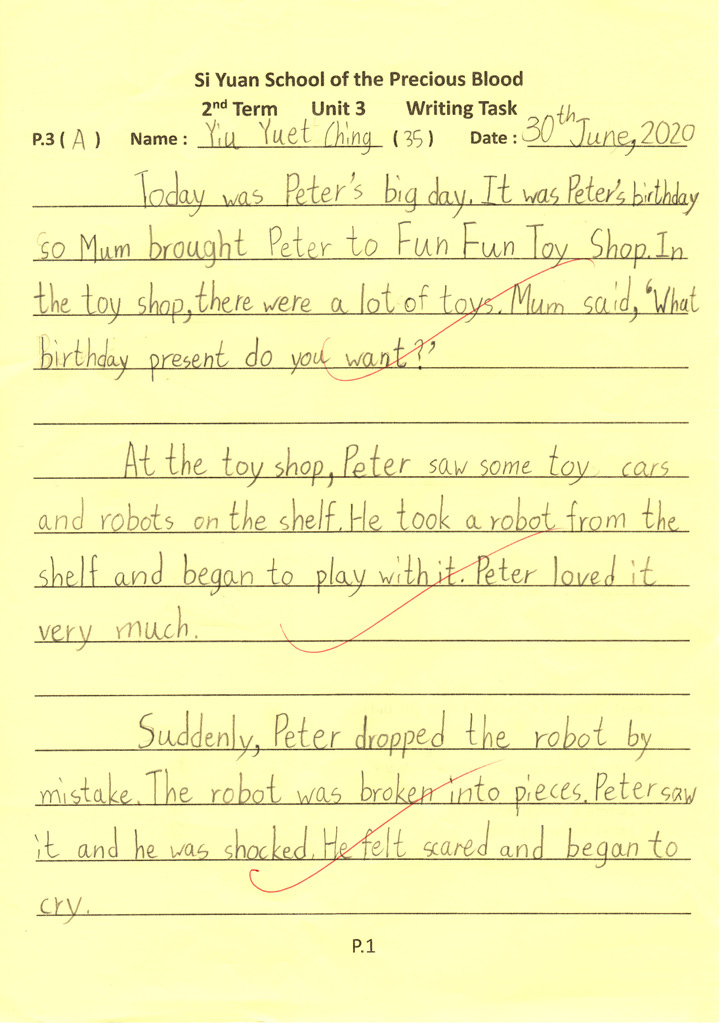 Si Yuan School of the Precious Blood
2nd Term Unit 3 Writing Task
P.3 ( A ) Name : Yiu Yuet Ching ( 35 ) Date : 30th June, 2020
Today was Peter's big day. It was Peter's birthday
so Mum brought Peter to Fun Fun Toy Shop. In
the toy shop, there were a lot of toys. Mum said, 'What
birthday present do you want?'
At the toy shop, Peter saw some toy cars
and robots on the shelf. He took a robot from the
shelf and began to play with it. Peter loved it
very much.
Suddenly, Peter dropped the robot by
mistake. The robot was broken into pieces. Peter saw
it and he was shocked. He felt scared and began to
cry.
P.1